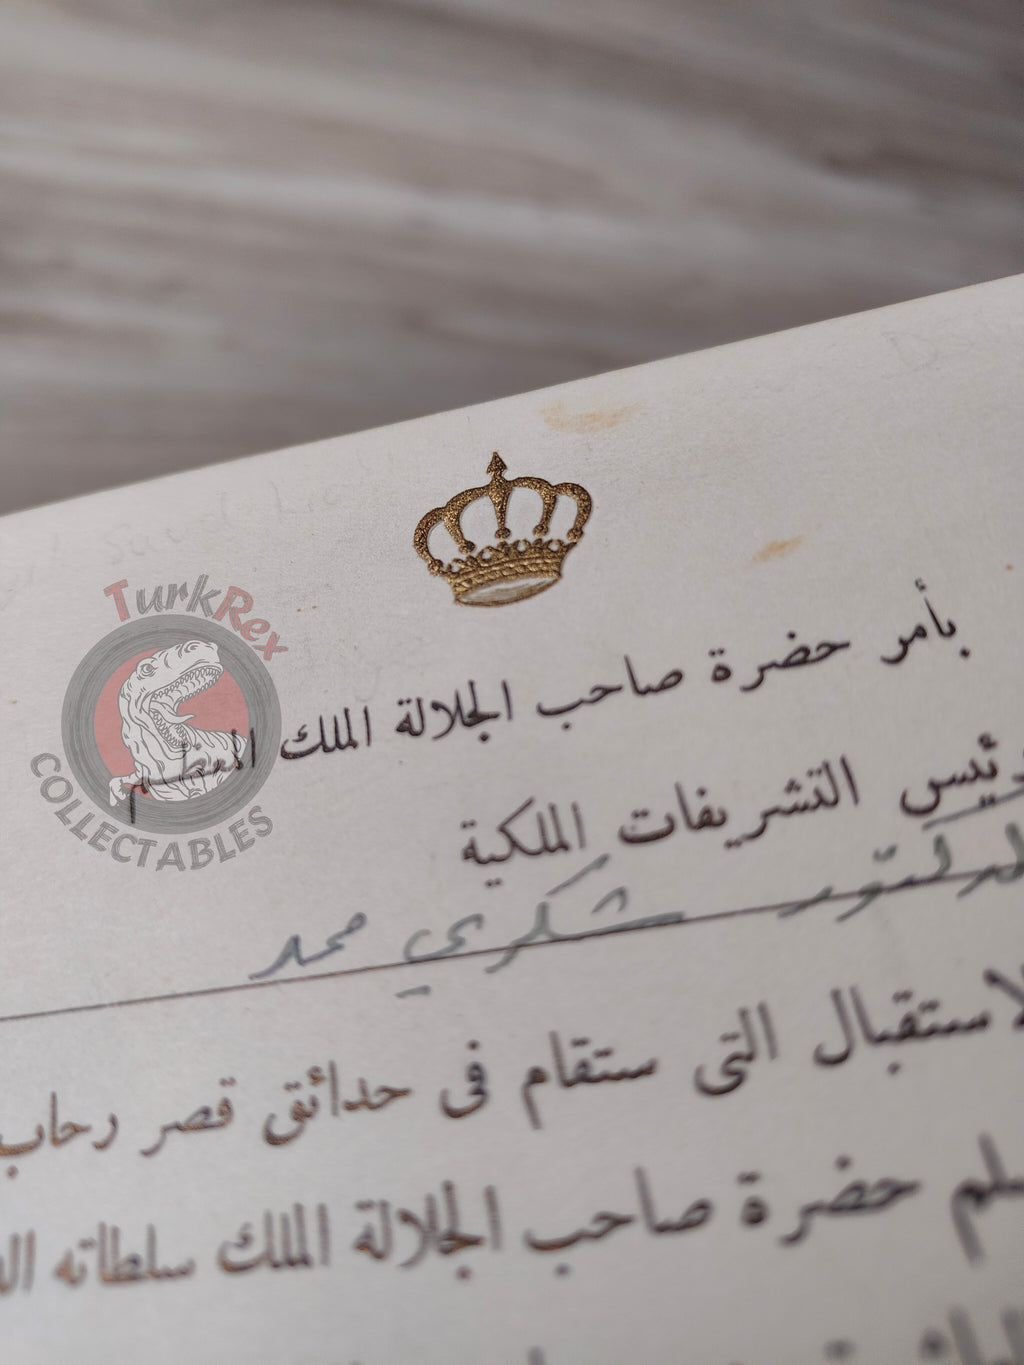 بأمر حضرة صاحب الجلالة الملك المعظم
رئيس التشريفات الملكية
الدكتور شكري محمد
الاستقبال التى ستقام فى حدائق قصر رحاب
حضرة صاحب الجلالة الملك سلطاته
TurkRex
COLLECTABLES